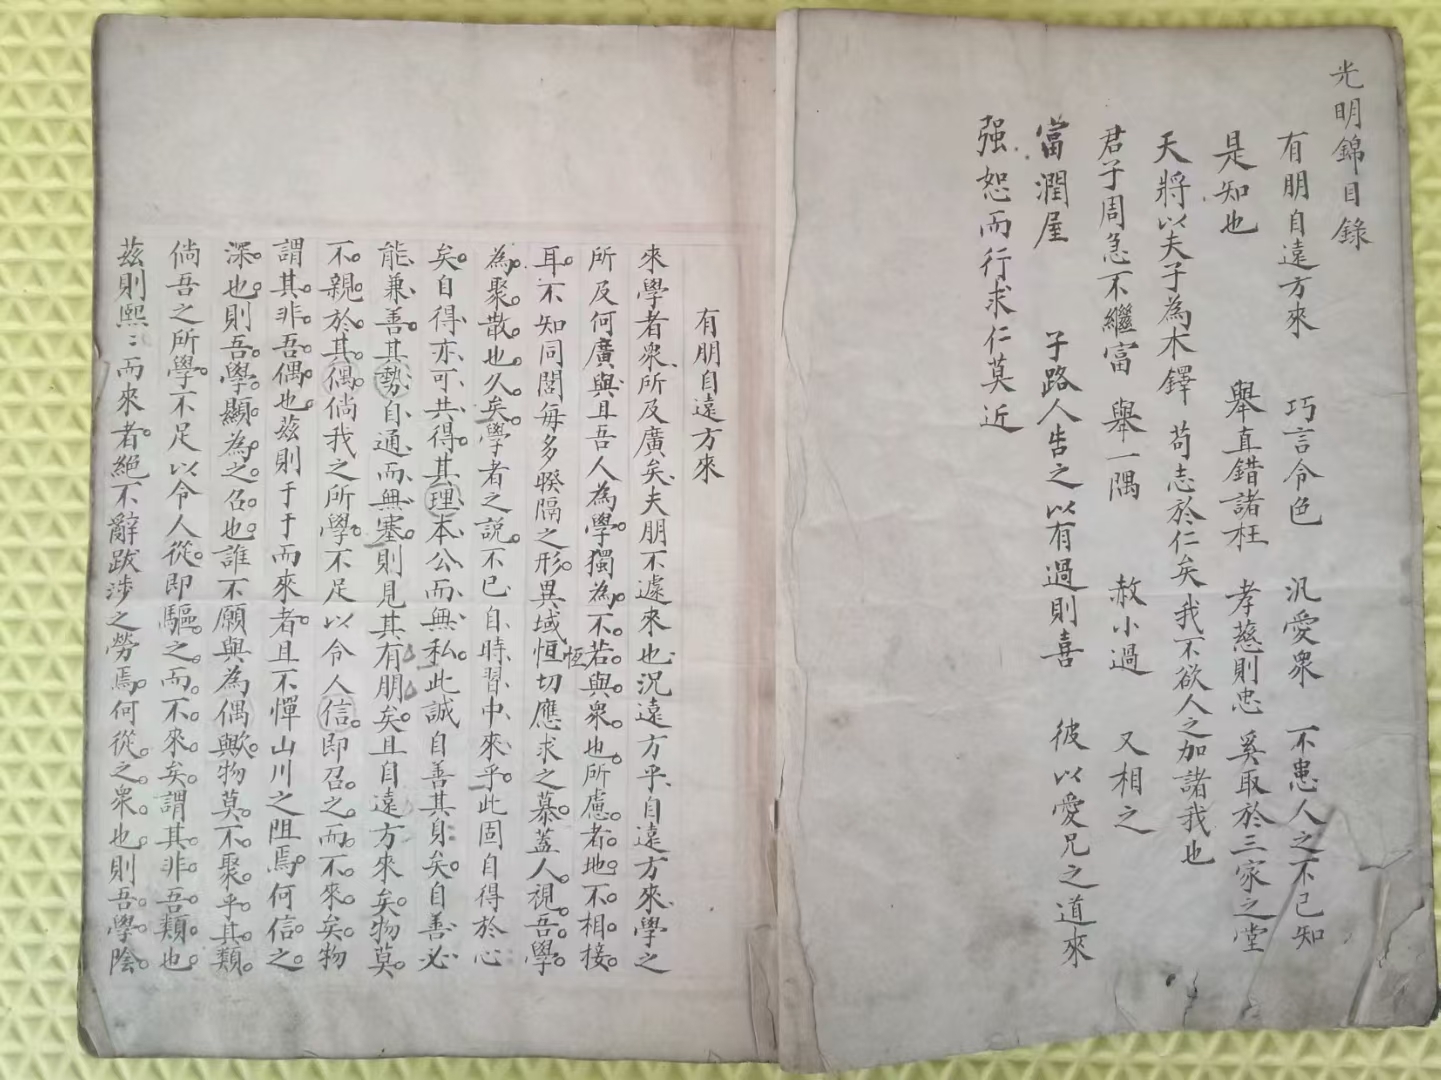 光明錦目錄
有朋自遠方來 巧言令色 汎愛衆 不患人之不己知
是知也 舉直錯諸枉 孝慈則忠 奚取於三家之堂
天將以夫子為木鐸 苟志於仁矣 我不欲人之加諸我也
君子周急不繼富 舉一隅 赦小過 又相之
富潤屋 子路人告之以有過則喜 彼以愛兄之道來
强恕而行求仁莫近
有朋自遠方來
來學者衆所及廣矣夫朋不遽來也況遠方乎自遠方來學之
所及何廣與且吾人為學獨為不若與衆也所慮者地不相接
耳不知同閭每多睽隔之形異域恒恆切應求之慕蓋人視吾學
為聚散也久矣學者之說不已自時習中來乎此固自得於心
矣自得亦可共得其理本公而無私此誠自善其身矣自善必
能兼善其勢自通而無塞則見其有朋矣且自遠方來矣物莫
不親於其偶倘我之所學不足以令人信即召之而不來矣物
謂其非吾偶也茲則于于而來者且不憚山川之阻焉何信之
深也則吾學顯為之召也誰不願與為偶歟物莫不聚乎其類
倘吾之所學不足以令人從即驅之而不來矣謂其非吾類也
茲則熙：而來者絕不辭跋涉之勞焉何從之衆也則吾學陰